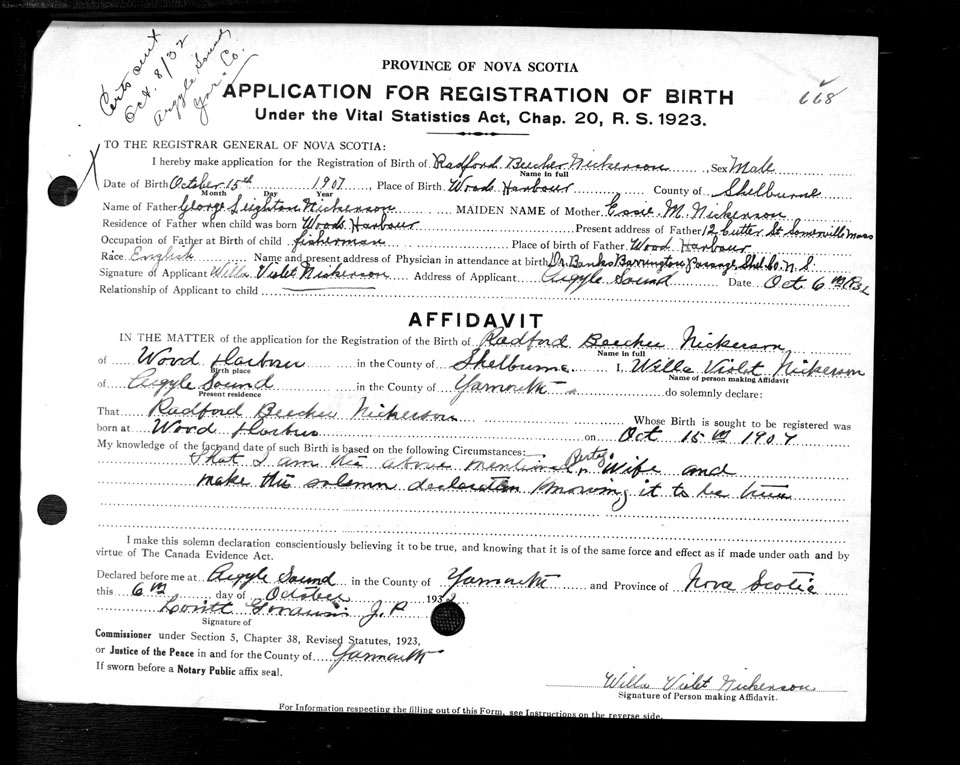 Certs out
Oct. 8/32
Argyle Sound
Yar. Co.
668
PROVINCE OF NOVA SCOTIA
APPLICATION FOR REGISTRATION OF BIRTH
Under the Vital Statistics Act, Chap. 20, R. S. 1923.
TO THE REGISTRAR GENERAL OF NOVA SCOTIA:
I hereby make application for the Registration of Birth of Radford Beecher Nickerson Sex Male
Name in full
Date of Birth October 15th 1907 Place of Birth Woods Harbour County of Shelburne
Month Day Year
Name of Father George Leighton Nickerson MAIDEN NAME of Mother Essie M. Nickerson
Residence of Father when child was born Woods Harbour Present address of Father 12 Cutter St Somerville Mass
Occupation of Father at Birth of child fisherman Place of birth of Father Wood Harbour
Race English Name and present address of Physician in attendance at birth Dr. Banks Barrington Passage, Shel. Co. N. S.
Signature of Applicant Willa Violet Nickerson Address of Applicant Argyle Sound Date Oct 6th 1932
Relationship of Applicant to child
AFFIDAVIT
IN THE MATTER of the application for the Registration of the Birth of Radford Beecher Nickerson
Name in full
of Wood Harbour in the County of Shelburne I, Willa Violet Nickerson
Birth place Name of person making Affidavit
of Argyle Sound in the County of Yarmouth do solemnly declare:
Present residence
That Radford Beecher Nickerson Whose Birth is sought to be registered was
born at Wood Harbour on Oct 15th 1907
My knowledge of the fact and date of such Birth is based on the following Circumstances:
That I am the above mentioned Party's Wife and
make this solemn declaration knowing it to be true
I make this solemn declaration conscientiously believing it to be true, and knowing that it is of the same force and effect as if made under oath and by
virtue of The Canada Evidence Act.
Declared before me at Argyle Sound in the County of Yarmouth and Province of Nova Scotia
this 6th day of October 1932
J. P.
Signature of
Commissioner under Section 5, Chapter 38, Revised Statutes, 1923,
or Justice of the Peace in and for the County of Yarmouth
If sworn before a Notary Public affix seal.
Willa Violet Nickerson
Signature of Person making Affidavit.
For Information respecting the filling out of this Form, see Instructions on the reverse side.